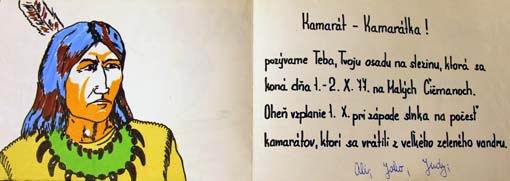 Kamarát - Kamarátka !
pozývame Teba, Tvoju osadu na slezinu, ktorá sa
koná dňa 1.-2. X. 77. na Malých Čižmanoch.
Oheň vzplanie 1. X. pri západe slnka na počesť
kamarátov, ktorí sa vrátili z veľkého zeleného vandru.